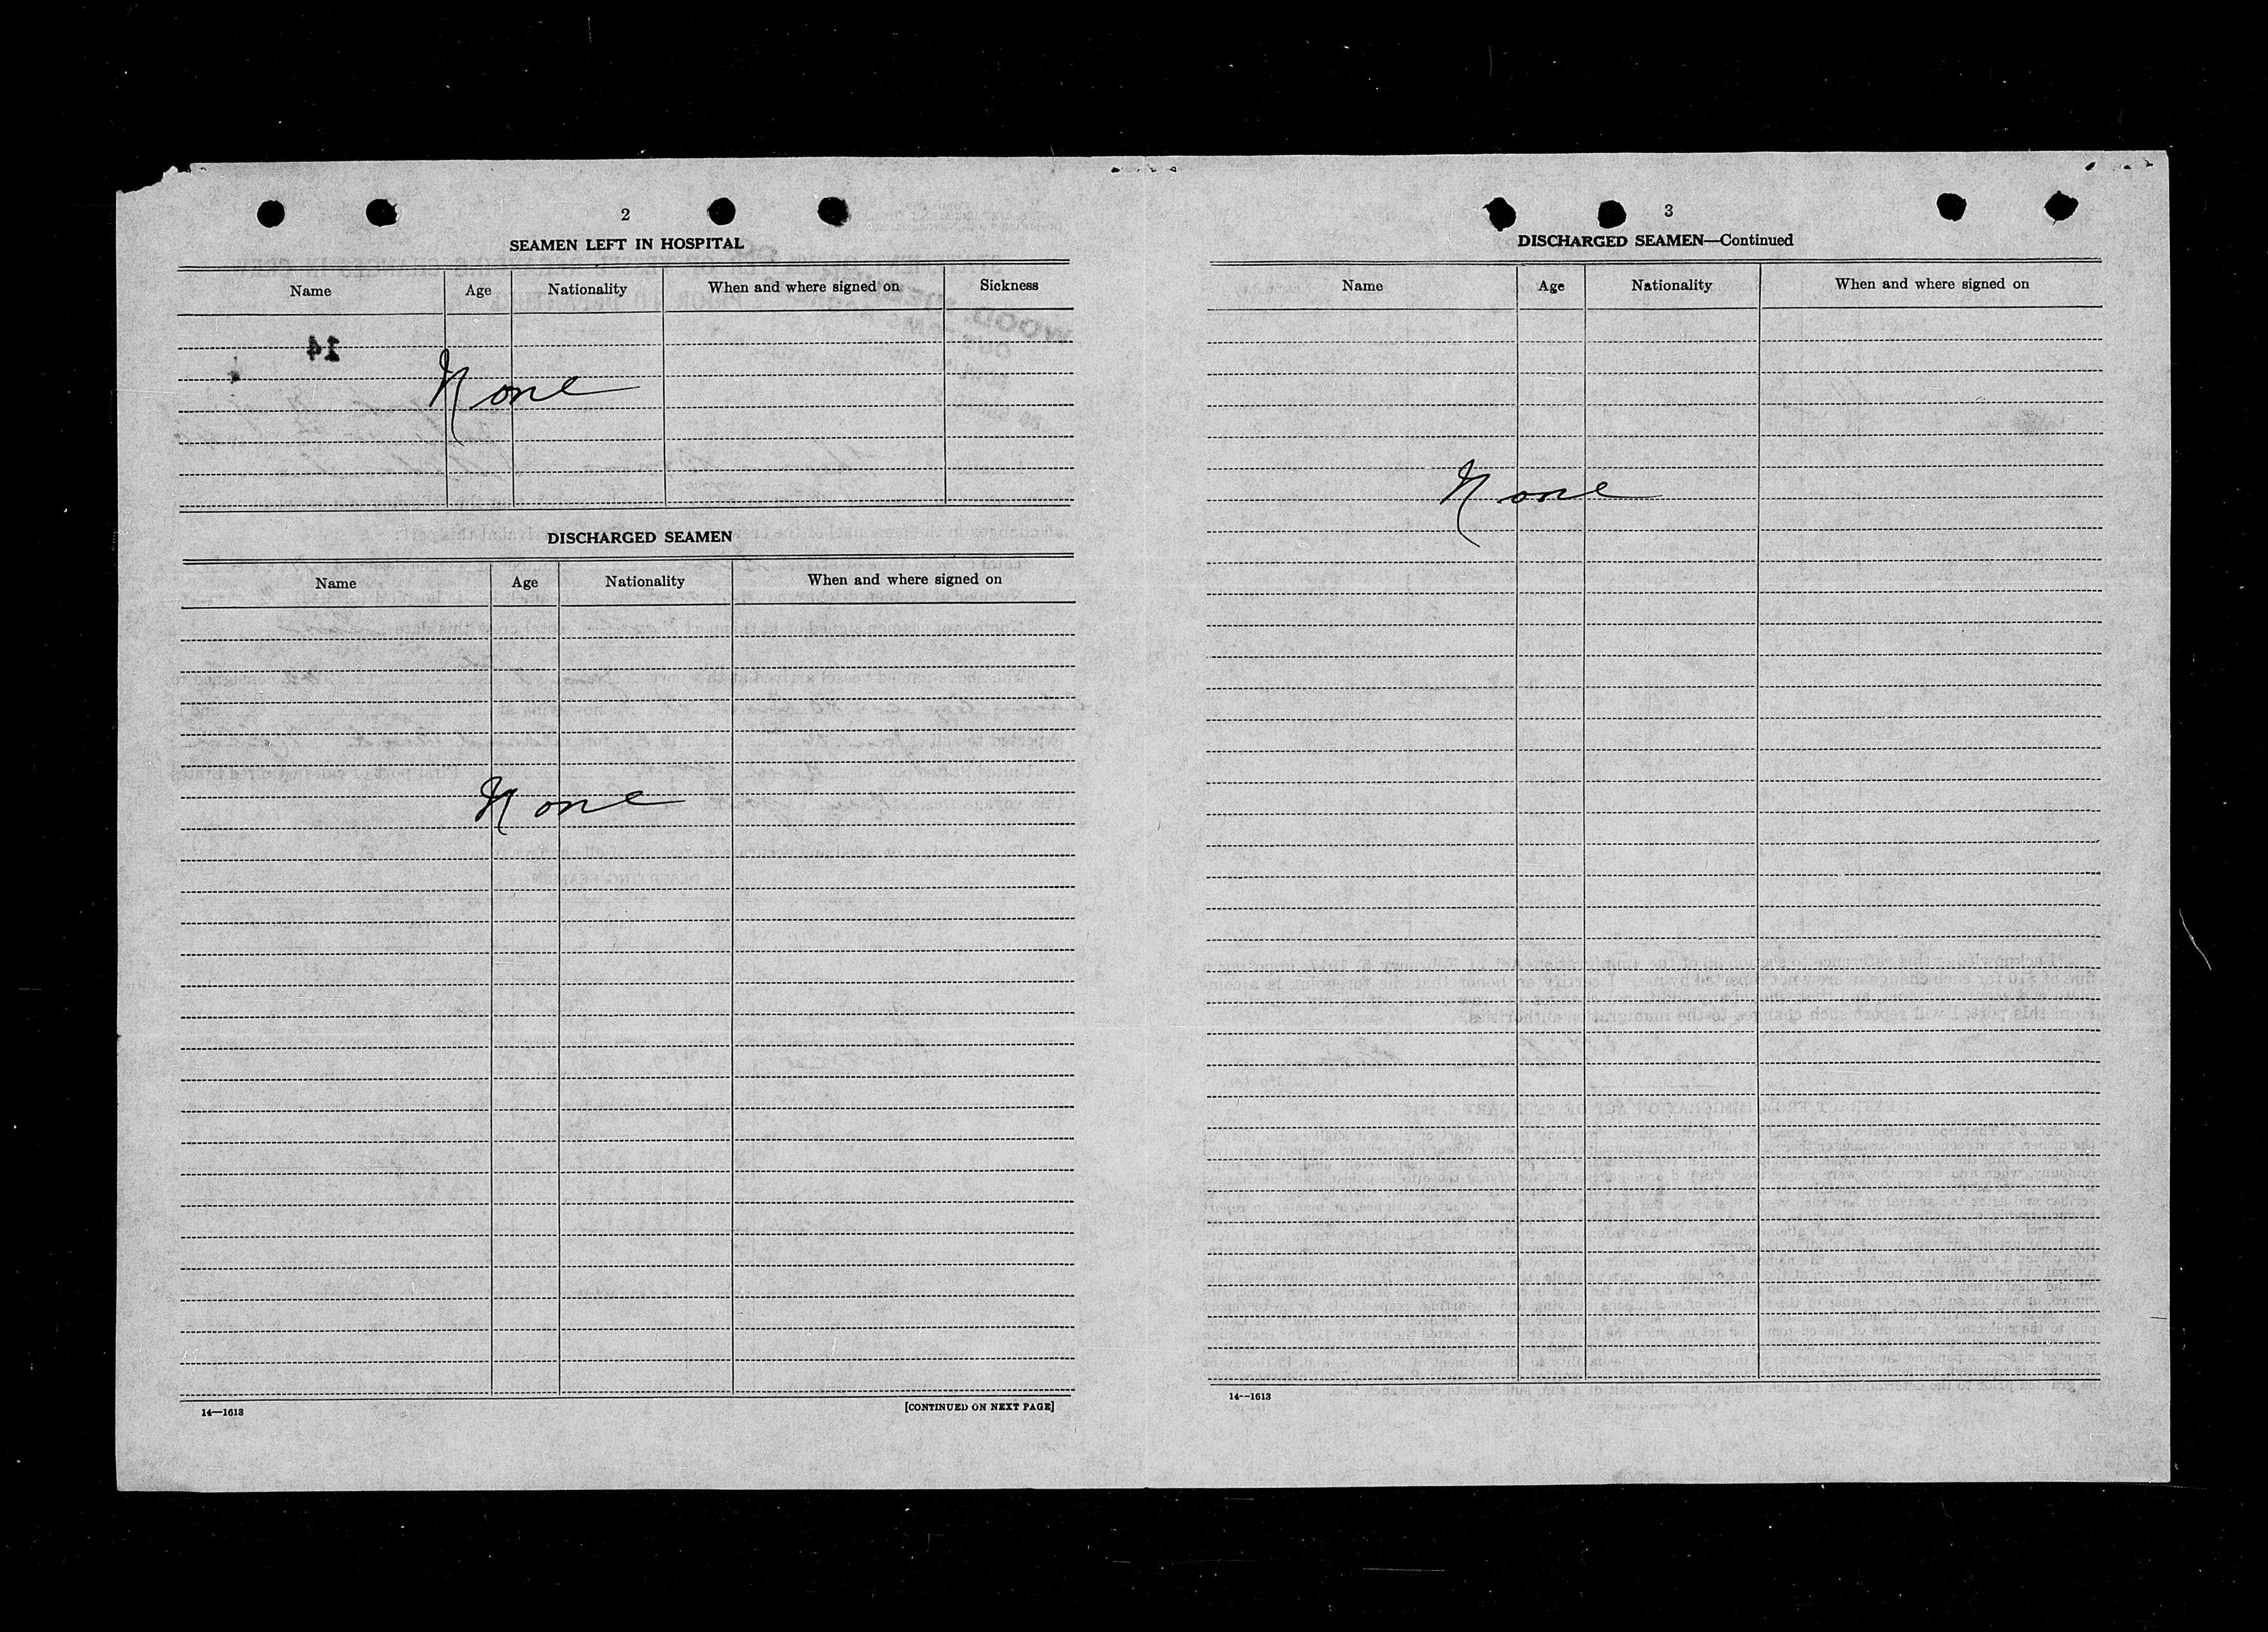 2
SEAMEN LEFT IN HOSPITAL
Name Age Nationality When and where signed on Sickness
14
None
DISCHARGED SEAMEN
Name Age Nationality When and where signed on
None
14—1613 [CONTINUED ON NEXT PAGE]
3
DISCHARGED SEAMEN—Continued
Name Age Nationality When and where signed on
None
14—1613